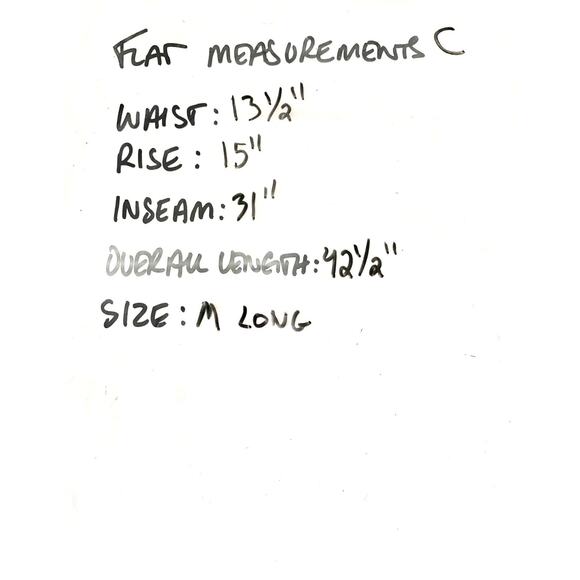 FLAT MEASUREMENTS C
WAIST: 13 1/2"
RISE: 15"
INSEAM: 31"
OVERALL LENGTH: 42 1/2"
SIZE: M LONG